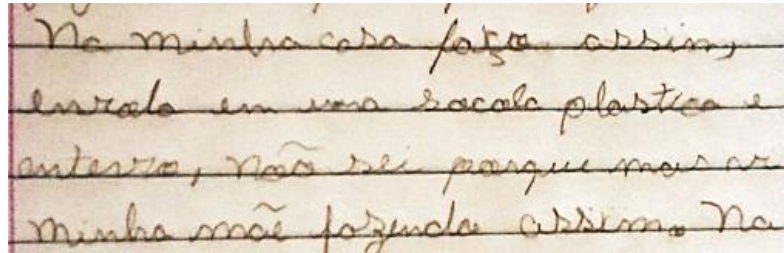 Na minha casa faço assim,
enrolo em uma sacola plastica e
enterro, não sei porque mas vi
minha mãe fazendo assim. Na